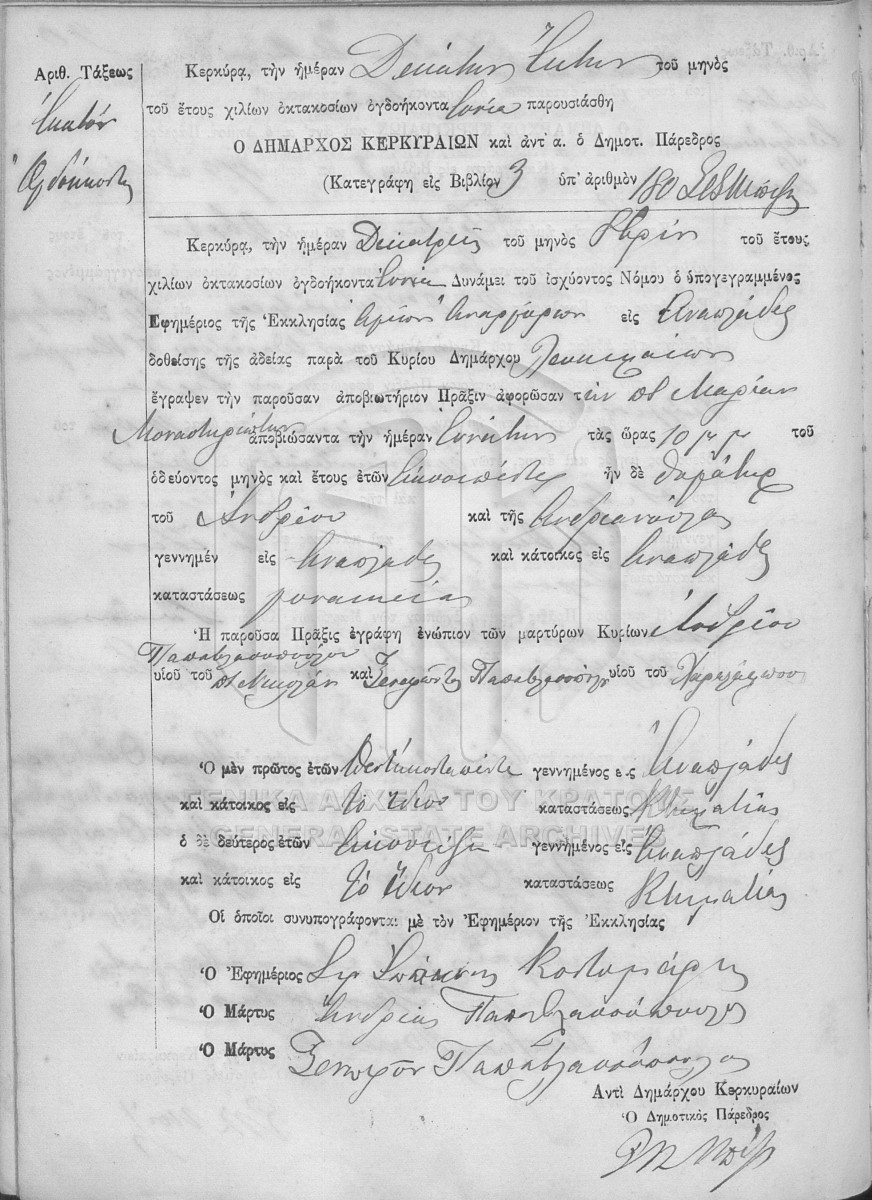 Αριθ. Τάξεως
Ἑκατόν
Ὀγδοήκοντα
Κερκύρᾳ, τὴν ἡμέραν Δεκάτην Ἕκτην τοῦ μηνὸς
τοῦ ἔτους χιλίων ὀκτακοσίων ὀγδοήκοντα ἐννέα παρουσιάσθη
Ο ΔΗΜΑΡΧΟΣ ΚΕΡΚΥΡΑΙΩΝ καὶ ἀντ' α. ὁ Δημοτ. Πάρεδρος
(Κατεγράφη εἰς Βιβλίον 3 ὑπ' ἀριθμὸν 180
Κερκύρᾳ, τὴν ἡμέραν Δεκατρεῖς τοῦ μηνὸς τοῦ ἔτους
χιλίων ὀκτακοσίων ὀγδοήκοντα ἐννέα Δυνάμει τοῦ ἰσχύοντος Νόμου ὁ ὑπογεγραμμένος
Ἐφημέριος τῆς Ἐκκλησίας Ἁγίων Ἀναργύρων εἰς Ἀναπλάδες
δοθείσης τῆς ἀδείας παρὰ τοῦ Κυρίου Δημάρχου Λευκιμαίων
ἔγραψεν τὴν παροῦσαν ἀποβιωτήριον Πρᾶξιν ἀφορῶσαν τὴν Μαρίαν
Μοναστηριώτην ἀποβιώσαντα τὴν ἡμέραν ἐννάτην τὰς ὥρας 10 μ μ τοῦ
ὁδεύοντος μηνὸς καὶ ἔτους ἐτῶν εἰκοσιπέντε ἦν δὲ θυγάτηρ
τοῦ Ἀνδρέου καὶ τῆς Ἀνδριανούλας
γεννημέν εἰς Ἀναπλάδες καὶ κάτοικος εἰς Ἀναπλάδες
καταστάσεως γυναικεία
Ἡ παροῦσα Πρᾶξις ἐγράφη ἐνώπιον τῶν μαρτύρων Κυρίων Ἀνδρέου
Παπαβλασοπούλου
υἱοῦ τοῦ Νικολάου καὶ Παπαβλασοπούλου υἱοῦ τοῦ Χαραλάμπου
Ὁ μὲν πρῶτος ἐτῶν πεντήκοντα πέντε γεννημένος εἰς Ἀναπλάδες
καὶ κάτοικος εἰς τὸ ἴδιον καταστάσεως Κτηματίας
ὁ δὲ δεύτερος ἐτῶν γεννημένος εἰς Ἀναπλάδες
καὶ κάτοικος εἰς τὸ ἴδιον καταστάσεως Κτηματίας
Οἱ ὁποῖοι συνυπογράφονται μὲ τὸν Ἐφημέριον τῆς Ἐκκλησίας
Ὁ Ἐφημέριος
Ὁ Μάρτυς Ἀνδρέας Παπαβλασόπουλος
Ὁ Μάρτυς Παπαβλασόπουλος
Αντὶ Δημάρχου Κερκυραίων
Ὁ Δημοτικὸς Πάρεδρος
ΓΕΝΙΚΑ ΑΡΧΕΙΑ ΤΟΥ ΚΡΑΤΟΥΣ
GENERAL STATE ARCHIVES